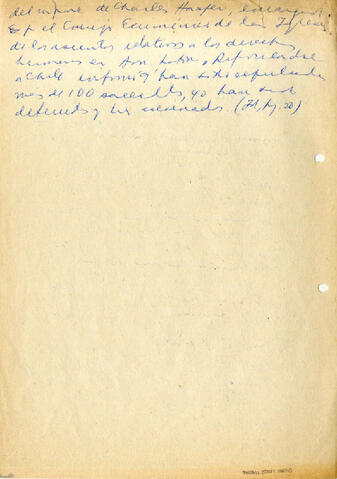 del informe de Charles Harper, encargado
por el Consejo Ecuménico de las Iglesias
de los asuntos relativos a los derechos
humanos en Am. Latina. Refiriéndose
a Chile informó q' han sido expulsados
más de 100 sacerdotes, 40 han sido
detenidos y tres asesinados (Id., pg. 20)